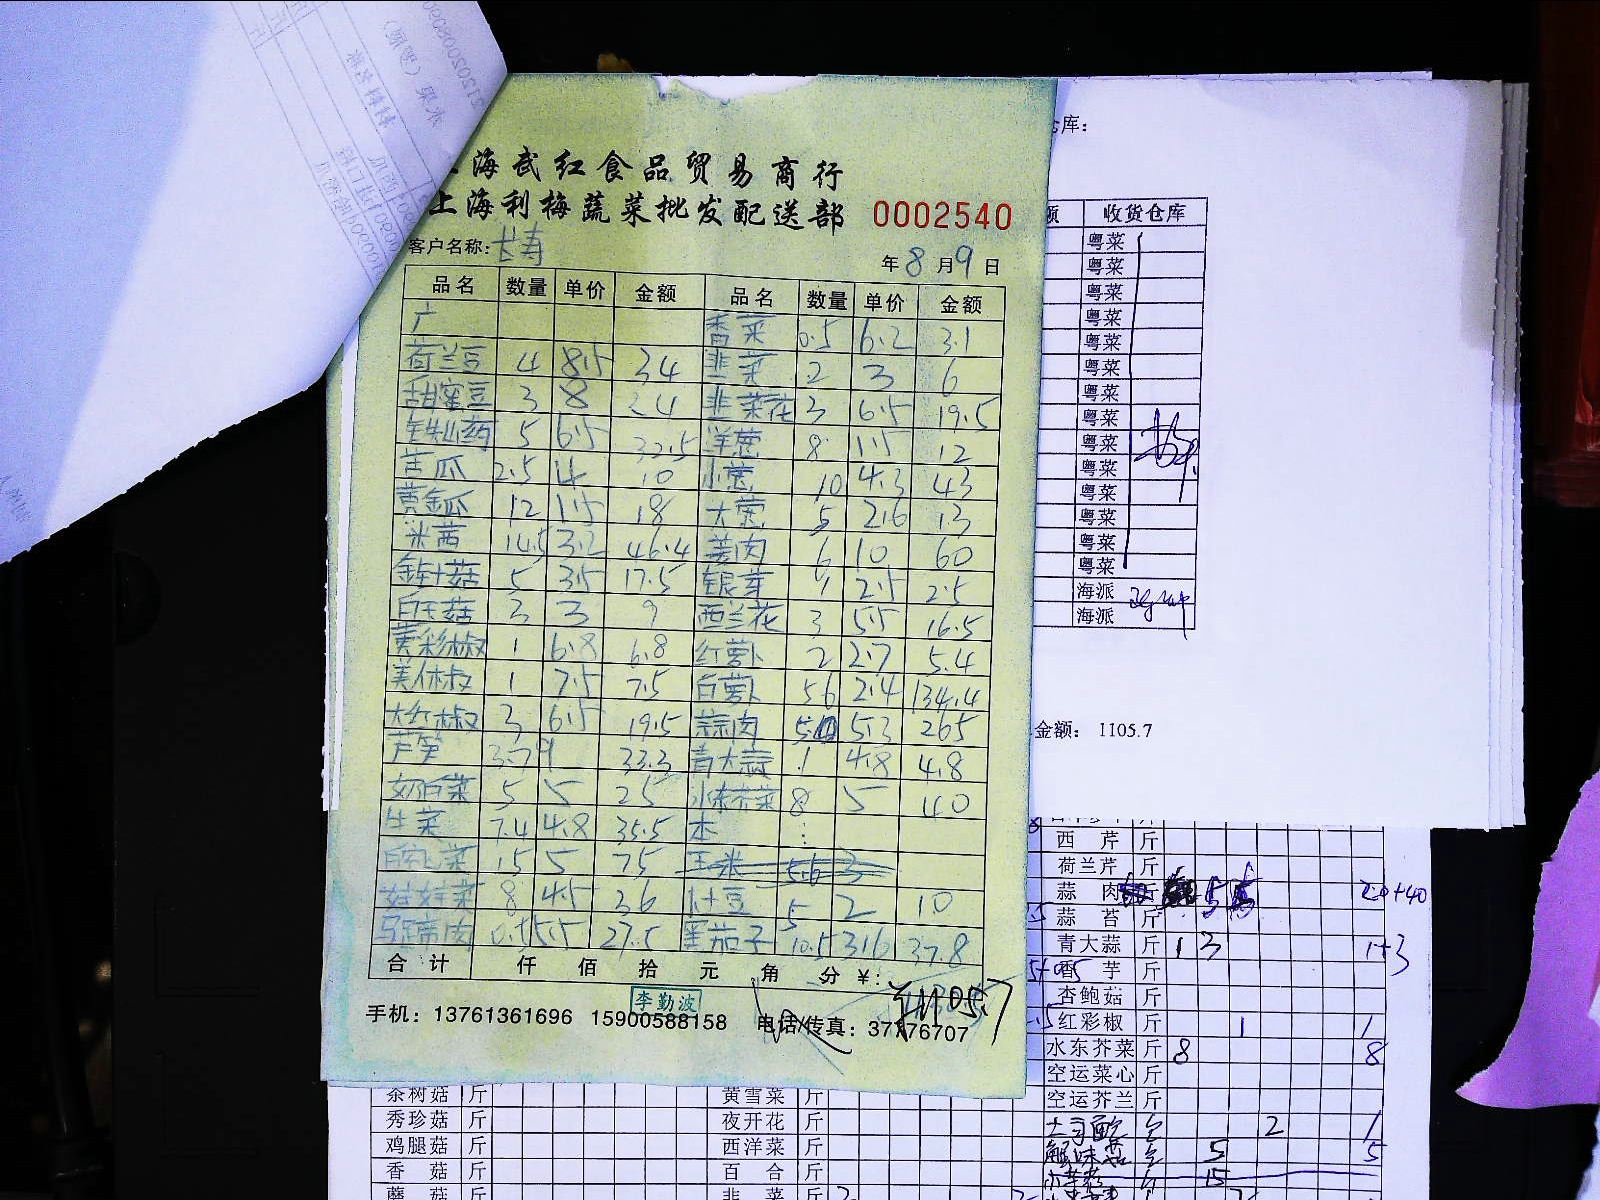 海武红食品贸易商行
上海利梅蔬菜批发配送部 0002540
客户名称: 长寿 年 8 月 9 日
品名 数量 单价 金额 品名 数量 单价 金额
广 香菜 0.5 6.2 3.1
荷兰豆 4 8.5 34 韭菜 2 3 6
甜蜜豆 3 8 24 韭菜花 3 6.5 19.5
铁山药 5 6.5 32.5 洋葱 8 1.5 12
苦瓜 2.5 4 10 小葱 10 4.3 43
黄金瓜 12 1.5 18 大葱 5 2.6 13
米茜 14.5 3.2 46.4 姜肉 6 10 60
金针菇 5 3.5 17.5 银芽 2.5 2.5
白玉菇 3 3 9 西兰花 3 5.5 16.5
黄彩椒 1 6.8 6.8 红萝卜 2 2.7 5.4
美人椒 1 7.5 7.5 白萝卜 56 2.4 134.4
大红椒 3 6.5 19.5 蒜肉 50 5.3 265
芦笋 3.7 9 33.3 青大蒜 1 4.8 4.8
奶白菜 5 5 25 水东芥菜 8 5 40
生菜 7.4 4.8 35.5 本
15 5 75 玉米 56 3
娃娃菜 8 4.5 36 土豆 5 2 10
马蹄肉 5.5 27.5 茄子 10.5 3.6 37.8
合计 仟 佰 拾 元 角 分 ¥: ¥1105.7
李勤波
手机: 13761361696 15900588158 电话/传真: 37776707
仓库:
额 收货仓库
粤菜
粤菜
粤菜
粤菜
粤菜
粤菜
粤菜
粤菜
粤菜
粤菜
粤菜
粤菜
粤菜
粤菜
海派
海派
金额: 1105.7
西芹 斤
荷兰芹 斤
蒜肉 斤
蒜苔 斤
青大蒜 斤 1 3 1+3
香芋 斤
杏鲍菇 斤
红彩椒 斤 1 1
水东芥菜 斤 8 8
空运菜心 斤
空运芥兰 斤
茶树菇 斤 黄雪菜 斤
秀珍菇 斤 夜开花 斤
鸡腿菇 斤 西洋菜 斤
香菇 斤 百合 斤
蘑菇 斤 韭菜 斤